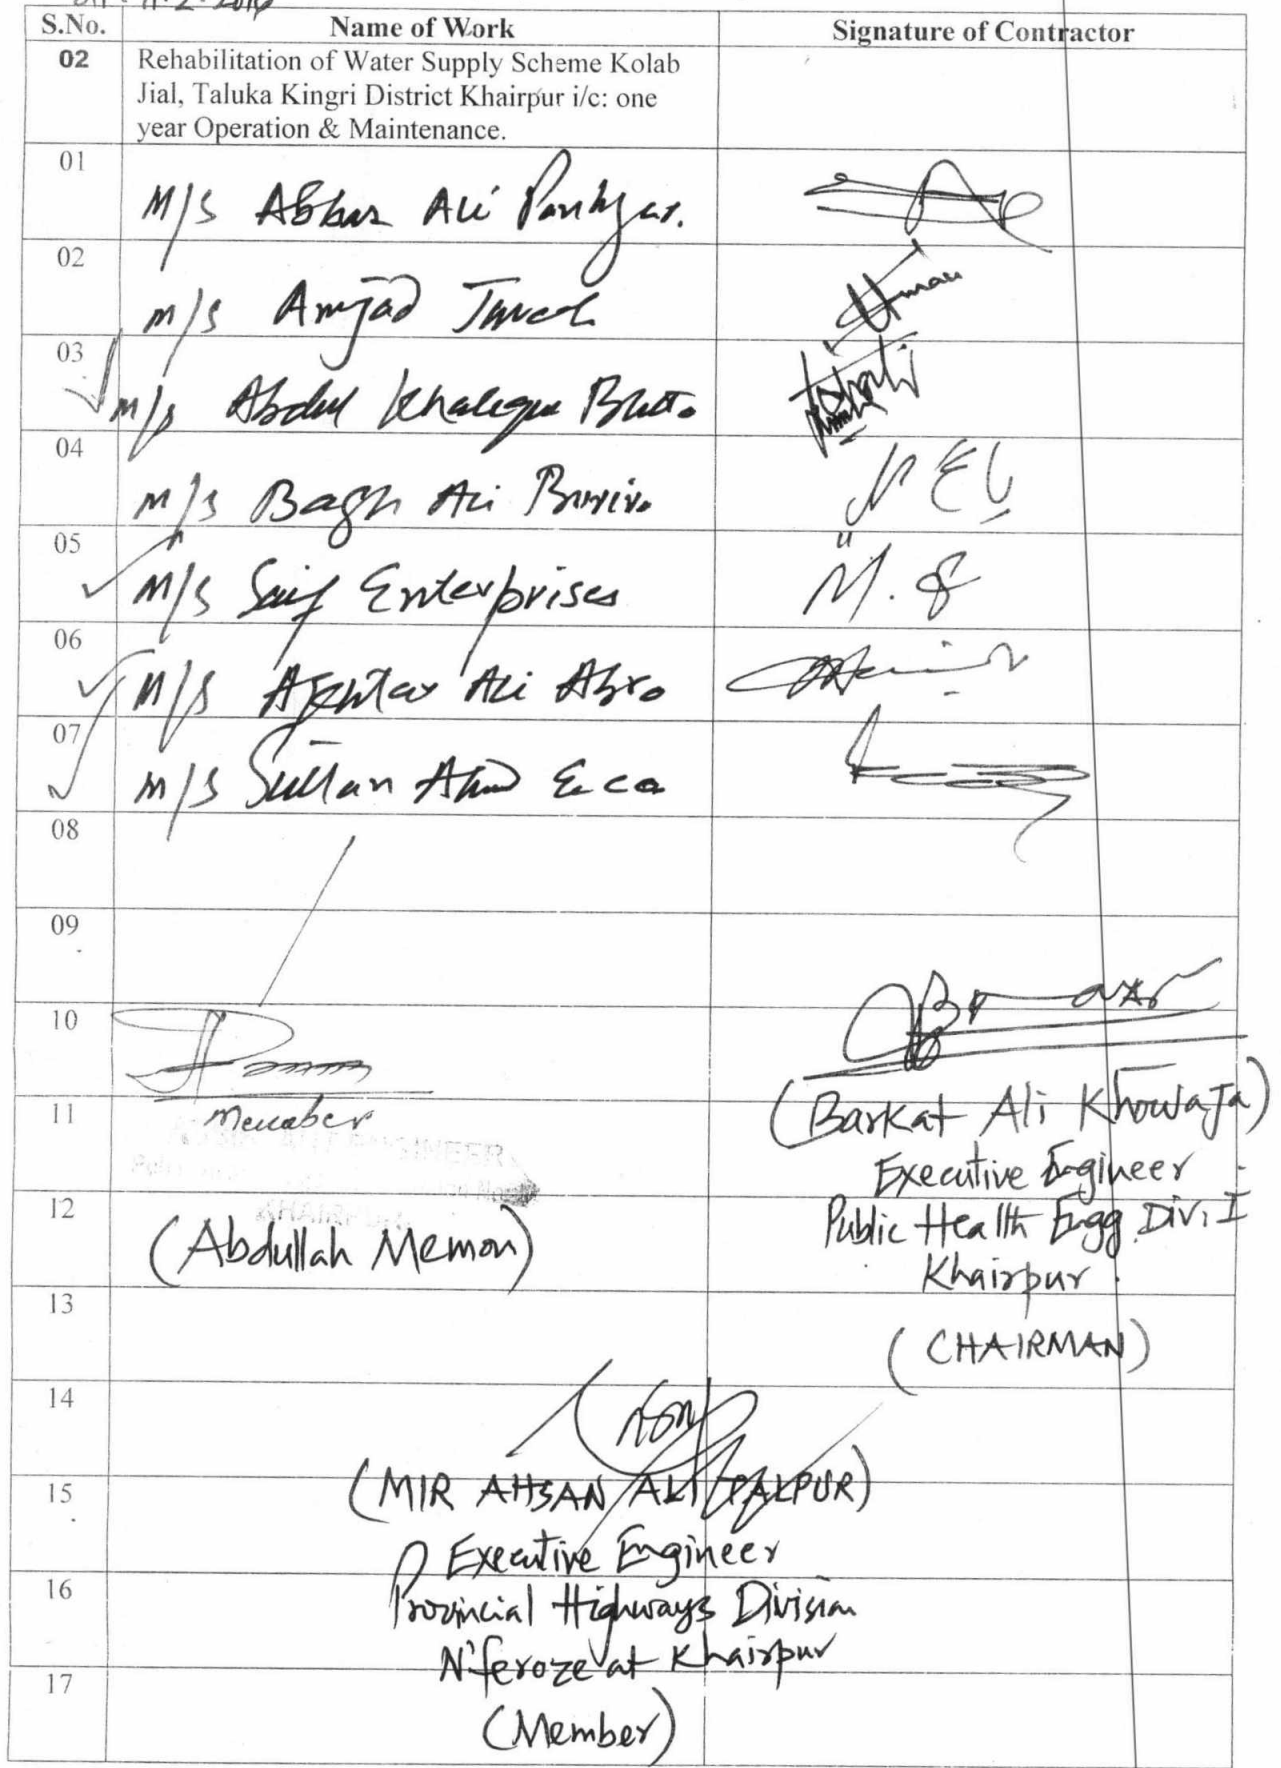 S.No. Name of Work Signature of Contractor
02 Rehabilitation of Water Supply Scheme Kolab
Jial, Taluka Kingri District Khairpur i/c: one
year Operation & Maintenance.
01
M/S Ali
02
M/S Amjad
03
M/S Abdul Khaleque
04
M/S Bagh Ali
05
M/S Saif Enterprises
06
M/S Akhtar Ali Abro
07
M/S Sultan & co
08
09
10
11
Member
ENGINEER
12
KHAIRPUR
(Abdullah Memon)
(Barkat Ali Khowaja)
Executive Engineer
Public Health Engg. Div: I
Khairpur
(CHAIRMAN)
13
14
15
(MIR AHSAN ALI TALPUR)
Executive Engineer
16
Provincial Highways Division
N'feroze at Khairpur
17
(Member)